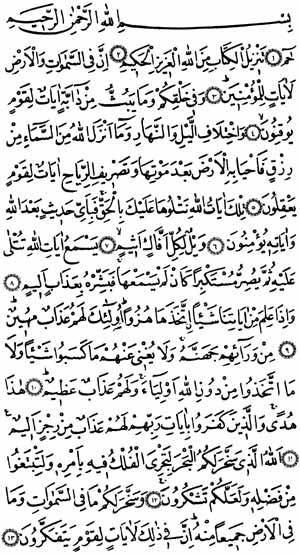 بِسْمِ اللهِ الرَّحْمٰنِ الرَّحِيمِ
حٰمٓ ۝١ تَنْزِيلُ الْكِتَابِ مِنَ اللهِ الْعَزِيزِ الْحَكِيمِ ۝٢ إِنَّ فِي السَّمٰوَاتِ وَالْأَرْضِ
لَآيَاتٍ لِلْمُؤْمِنِينَ ۝٣ وَفِي خَلْقِكُمْ وَمَا يَبُثُّ مِنْ دَابَّةٍ آيَاتٌ لِقَوْمٍ
يُوقِنُونَ ۝٤ وَاخْتِلَافِ الَّيْلِ وَالنَّهَارِ وَمَا أَنْزَلَ اللهُ مِنَ السَّمَاءِ مِنْ
رِزْقٍ فَأَحْيَا بِهِ الْأَرْضَ بَعْدَ مَوْتِهَا وَتَصْرِيفِ الرِّيَاحِ آيَاتٌ لِقَوْمٍ
يَعْقِلُونَ ۝٥ تِلْكَ آيَاتُ اللهِ نَتْلُوهَا عَلَيْكَ بِالْحَقِّ فَبِأَيِّ حَدِيثٍ بَعْدَ اللهِ
وَآيَاتِهِ يُؤْمِنُونَ ۝٦ وَيْلٌ لِكُلِّ أَفَّاكٍ أَثِيمٍ ۝٧ يَسْمَعُ آيَاتِ اللهِ تُتْلٰى
عَلَيْهِ ثُمَّ يُصِرُّ مُسْتَكْبِرًا كَأَنْ لَمْ يَسْمَعْهَا فَبَشِّرْهُ بِعَذَابٍ أَلِيمٍ ۝٨
وَإِذَا عَلِمَ مِنْ آيَاتِنَا شَيْئًا اتَّخَذَهَا هُزُوًا أُولٰئِكَ لَهُمْ عَذَابٌ مُهِينٌ
۝٩ مِنْ وَرَائِهِمْ جَهَنَّمُ وَلَا يُغْنِي عَنْهُمْ مَا كَسَبُوا شَيْئًا وَلَا
مَا اتَّخَذُوا مِنْ دُونِ اللهِ أَوْلِيَاءَ وَلَهُمْ عَذَابٌ عَظِيمٌ ۝١٠ هٰذَا
هُدًى وَالَّذِينَ كَفَرُوا بِآيَاتِ رَبِّهِمْ لَهُمْ عَذَابٌ مِنْ رِجْزٍ أَلِيمٌ
۝١١ اللهُ الَّذِي سَخَّرَ لَكُمُ الْبَحْرَ لِتَجْرِيَ الْفُلْكُ فِيهِ بِأَمْرِهِ وَلِتَبْتَغُوا
مِنْ فَضْلِهِ وَلَعَلَّكُمْ تَشْكُرُونَ ۝١٢ وَسَخَّرَ لَكُمْ مَا فِي السَّمٰوَاتِ وَمَا
فِي الْأَرْضِ جَمِيعًا مِنْهُ إِنَّ فِي ذٰلِكَ لَآيَاتٍ لِقَوْمٍ يَتَفَكَّرُونَ ۝١٣